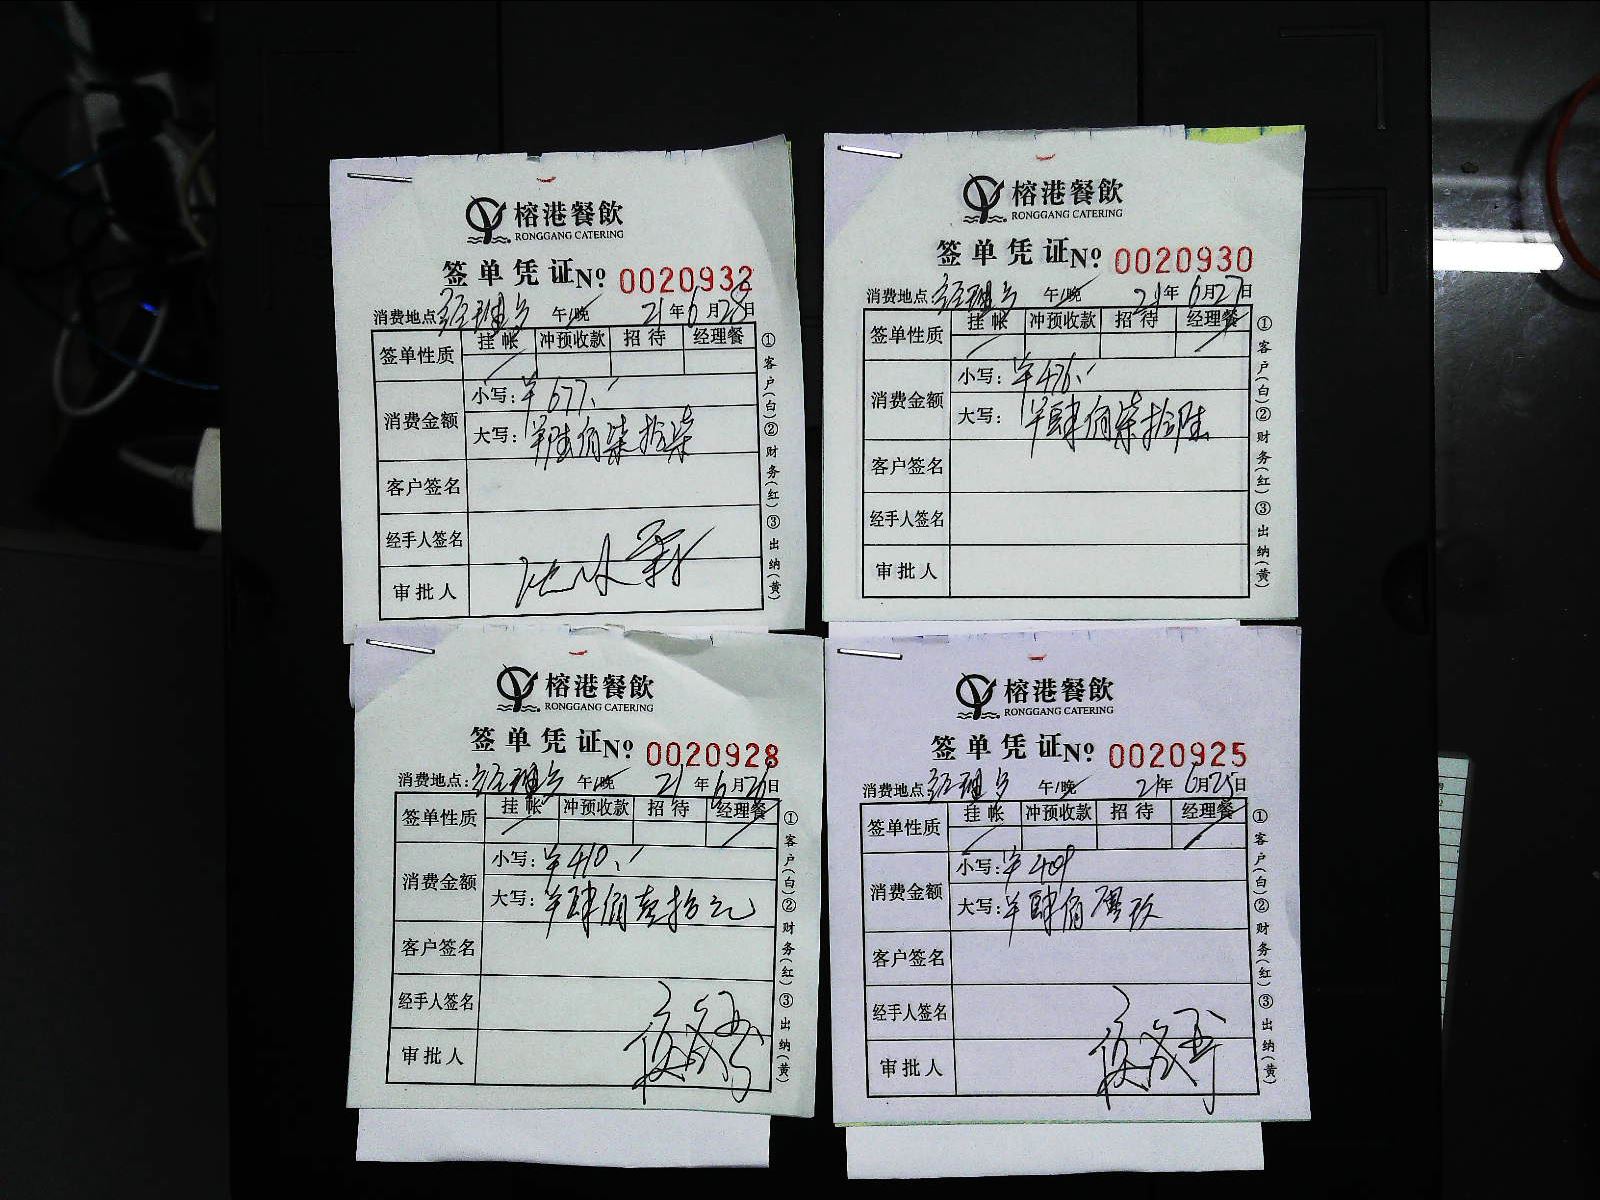 榕港餐飲
RONGGANG CATERING
签单凭证 No 0020932
消费地点: 经理 午/晚 21年6月28日
签单性质 挂帐 冲预收款 招待 经理餐
消费金额 小写: ¥677.
大写: 陆佰柒拾柒
客户签名
经手人签名
审批人
①客户(白)②财务(红)③出纳(黄)
榕港餐飲
RONGGANG CATERING
签单凭证 No 0020930
消费地点 经理 午/晚 21年6月27日
签单性质 挂帐 冲预收款 招待 经理餐
消费金额 小写: ¥476.
大写: 肆佰柒拾陆
客户签名
经手人签名
审批人
①客户(白)②财务(红)③出纳(黄)
榕港餐飲
RONGGANG CATERING
签单凭证 No 0020928
消费地点: 经理 午/晚 21年6月26日
签单性质 挂帐 冲预收款 招待 经理餐
消费金额 小写: ¥410.
大写: 肆佰壹拾元
客户签名
经手人签名
审批人
①客户(白)②财务(红)③出纳(黄)
榕港餐飲
RONGGANG CATERING
签单凭证 No 0020925
消费地点: 经理 午/晚 21年6月25日
签单性质 挂帐 冲预收款 招待 经理餐
消费金额 小写: ¥409
大写: 肆佰零玖
客户签名
经手人签名
审批人
①客户(白)②财务(红)③出纳(黄)